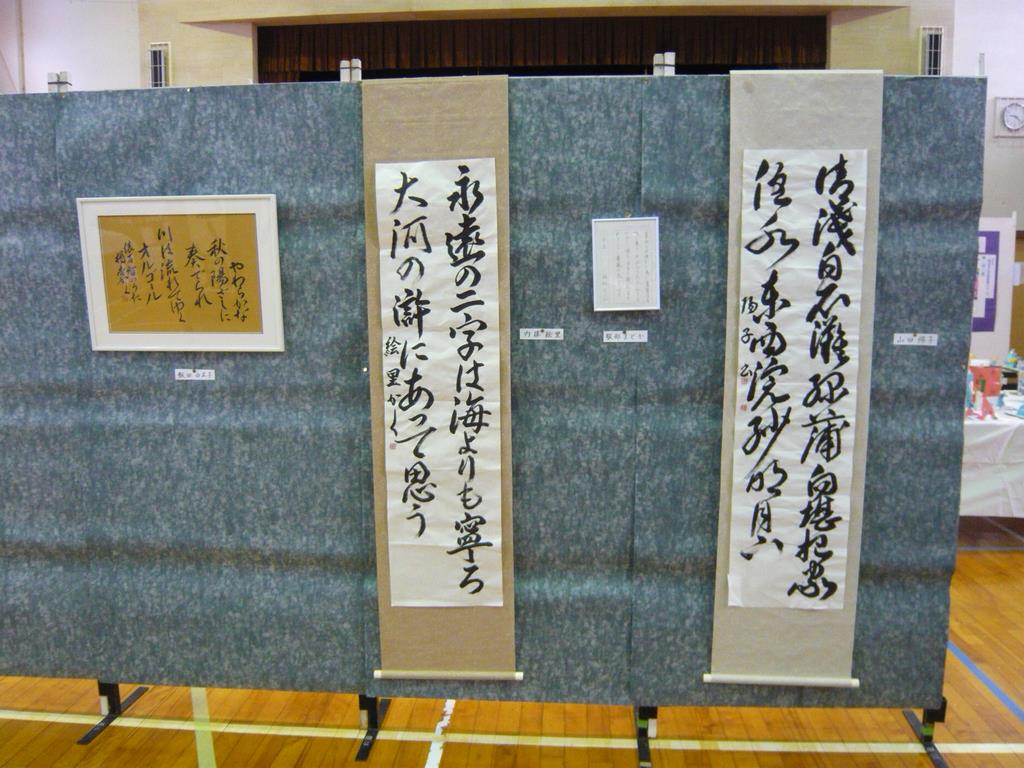 やわらかな
秋の陽ざしに
奏でられ
川は流れてゆく
オルゴール
永遠の二字は海よりも寧ろ
大河の滸にあって思う
絵里かく
内藤 絵里
服部 まどか
清淺白石灘綠蒲向堪把家
住水東西浣紗明月下
陽子書
山田 陽子